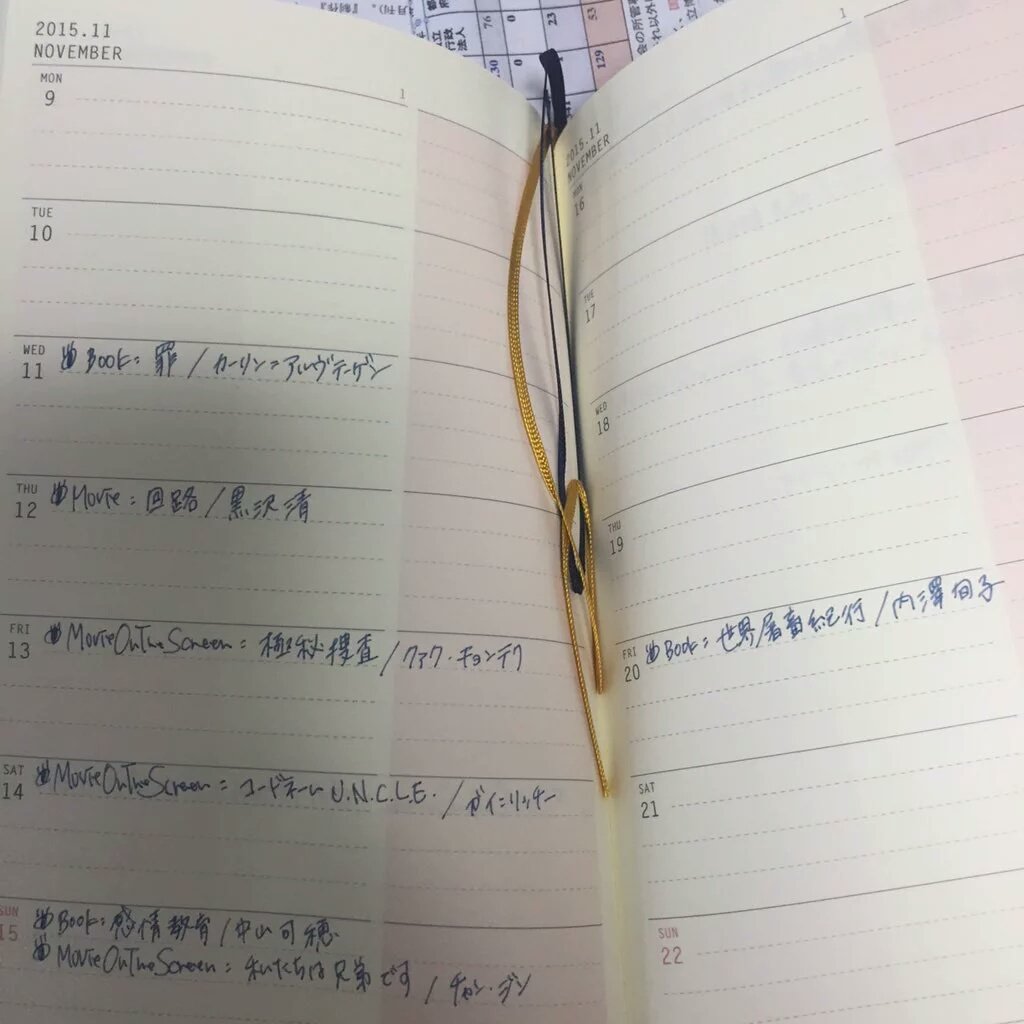 2015.11
NOVEMBER
1
MON
9
TUE
10
WED
11
Book: 罪 / カーリン=アルヴテーゲン
THU
12
Movie: 回路 / 黒沢清
FRI
13
MovieOnTheScreen: 極秘捜査 / クァク・キョンテク
SAT
14
MovieOnTheScreen: コードネーム U.N.C.L.E. / ガイ=リッチー
SUN
15
Book: 感情教育 / 中山可穂
MovieOnTheScreen: 私たちは兄弟です / チャン・ジン
1
2015.11
NOVEMBER
MON
16
TUE
17
WED
18
THU
19
FRI
20
Book: 世界屠畜紀行 / 内澤旬子
SAT
21
SUN
22
76
0
23
53
130
0
129
立行政法人